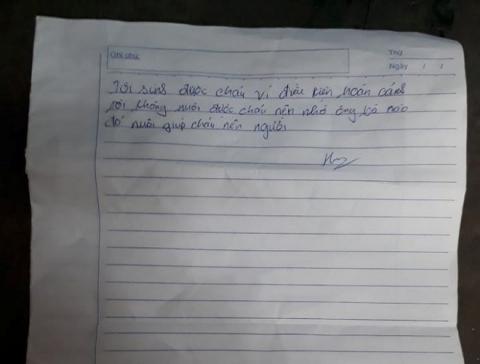 Ghi chú
Thứ
Ngày / /
Tôi sinh được cháu vì điều kiện hoàn cảnh
tôi không nuôi được cháu nên nhờ ông bà nào
đó nuôi giúp cháu nên người